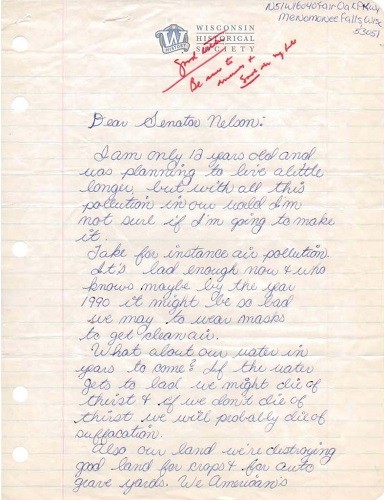 N51W16040 Fair Oak Pkwy
Menomonee Falls, Wisc
53051
WISCONSIN
HISTORICAL
SOCIETY
HISTORY
Good
Be sure to
answer &
Send
Dear Senator Nelson:
I am only 12 years old and
was planning to live alittle
longer, but with all this
pollution in our world I'm
not sure if I'm going to make
it.
Take for instance air pollution.
It's bad enough now & who
knows maybe by the year
1990 it might be so bad
we may to wear masks
to get clean air.
What about our water in
years to come? If the water
gets to bad we might die of
thirst & if we don't die of
thirst we will probably die of
suffacation.
Also our land we're destroying
good land for craps & for auto
grave yards. We American's